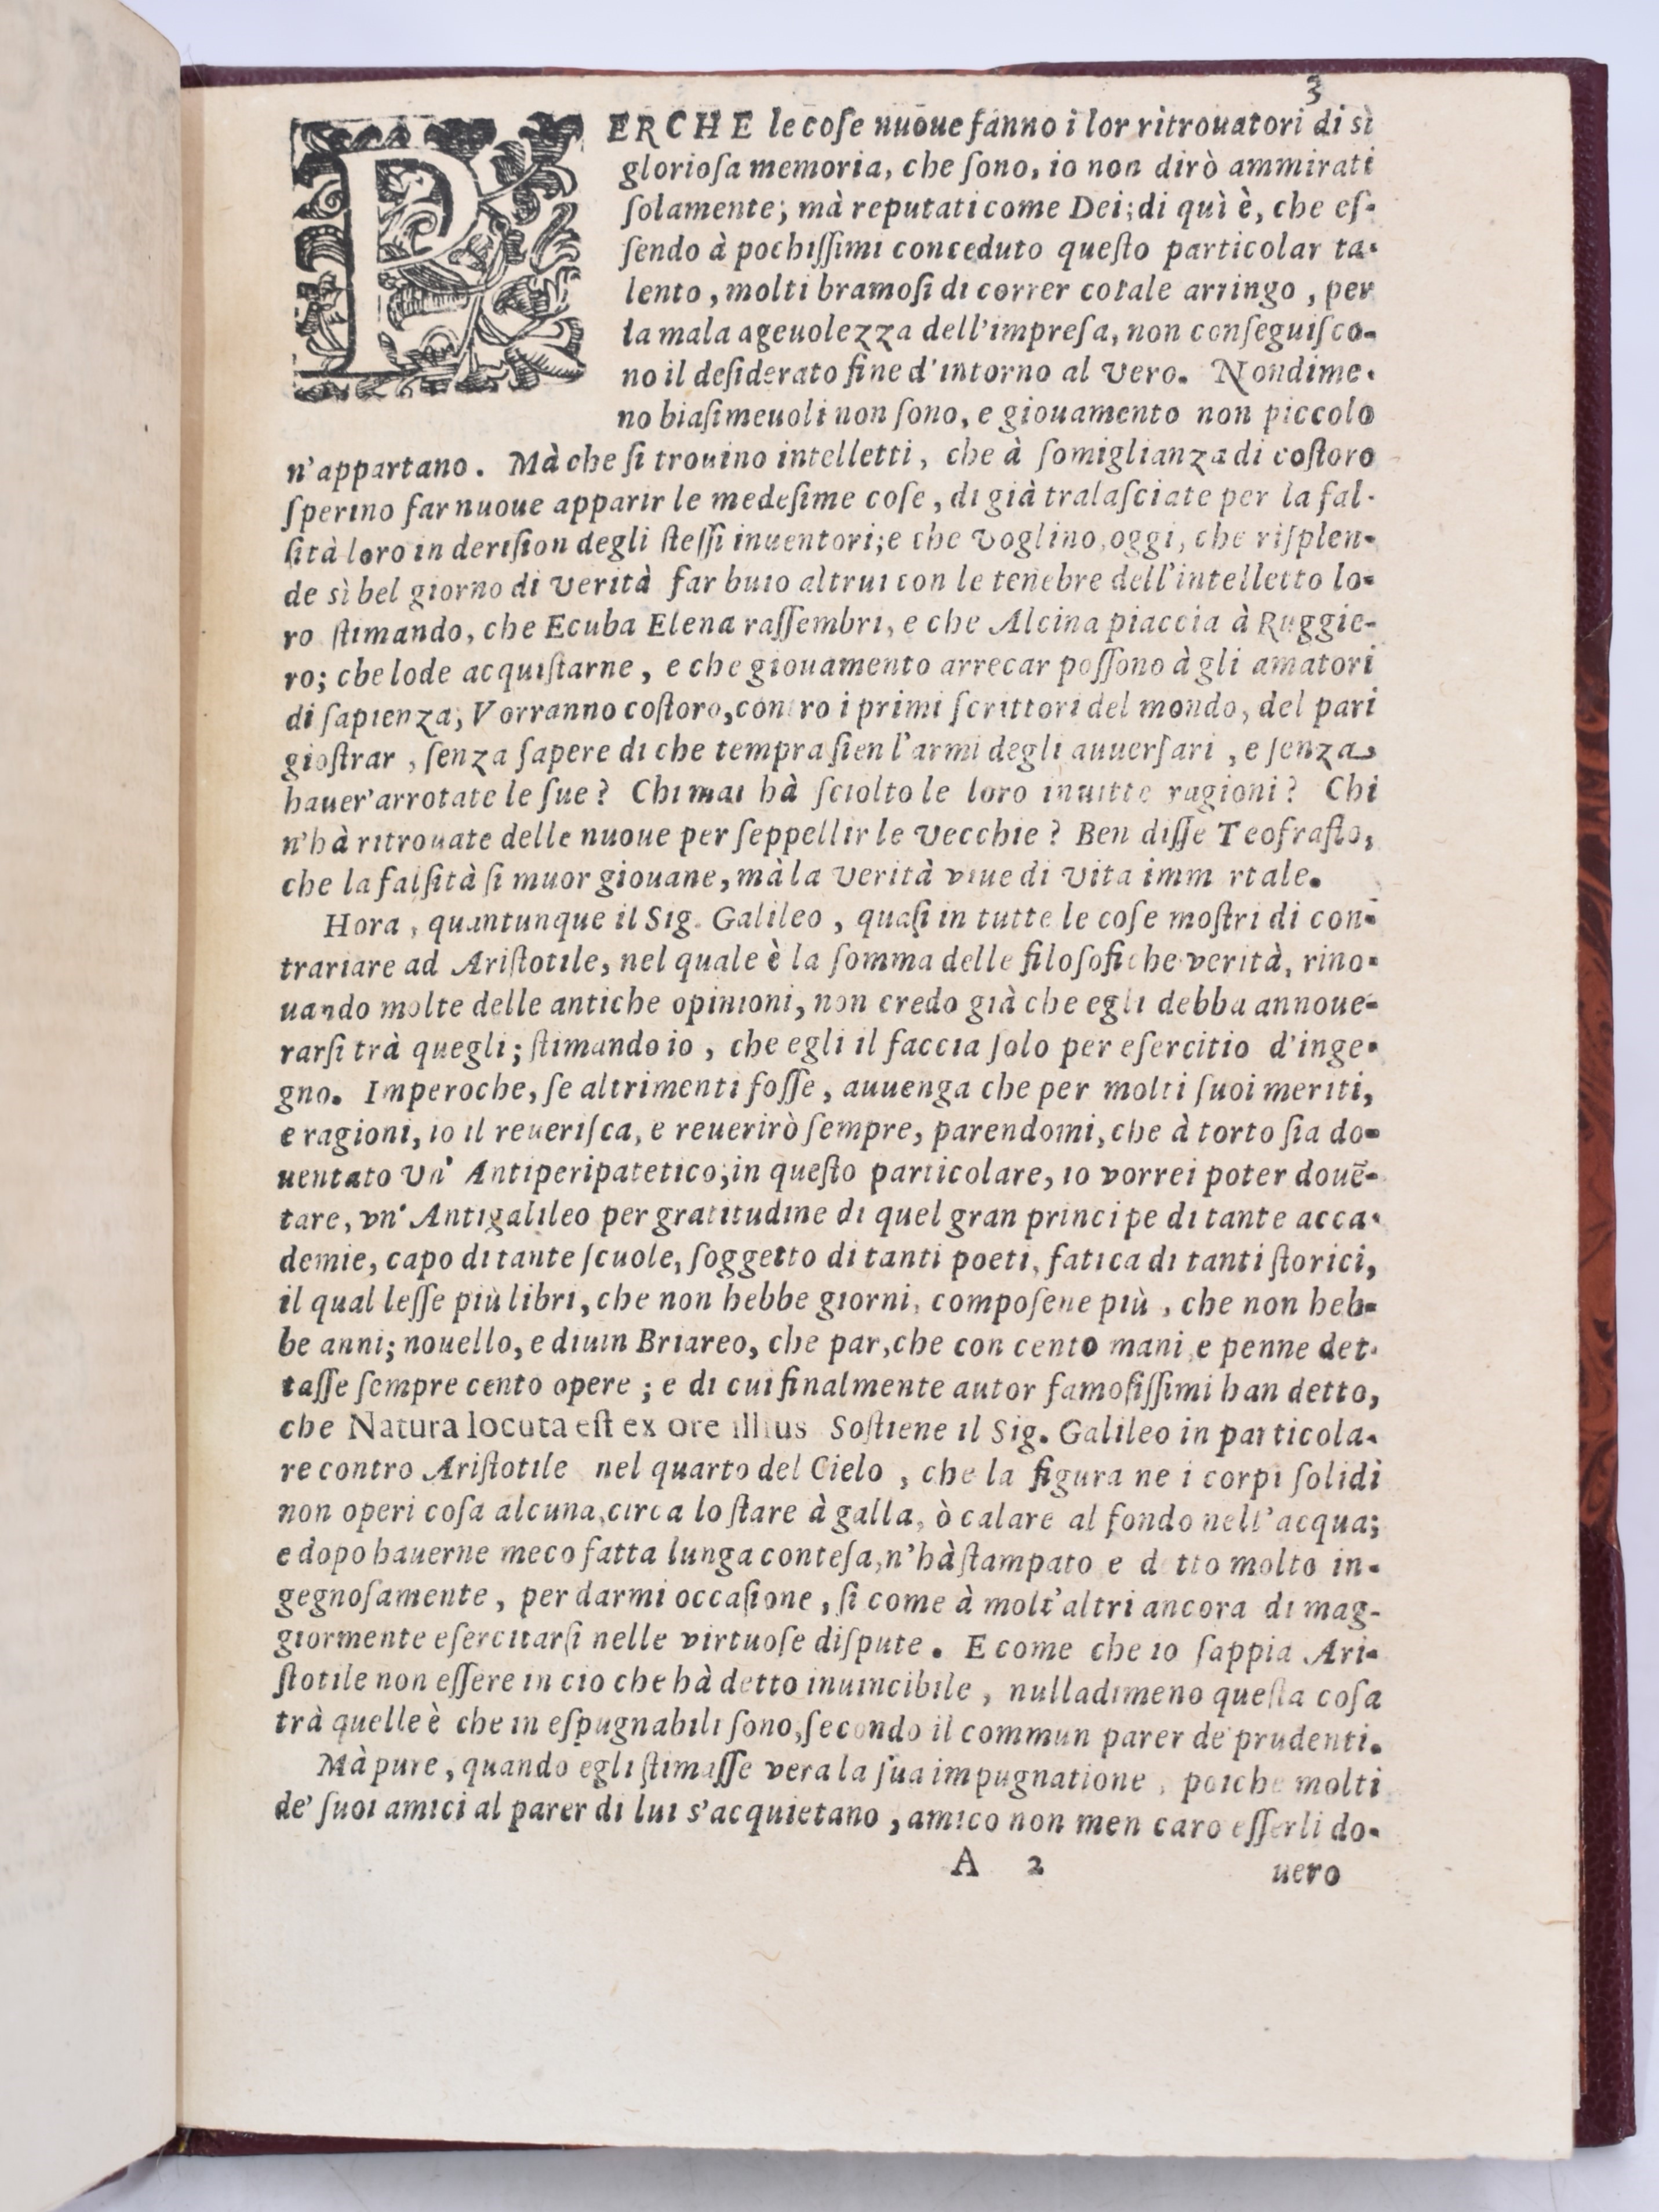 3
PERCHE le coſe nuoue fanno i lor ritrouatori di sì
glorioſa memoria, che ſono, io non dirò ammirati
ſolamente; mà reputati come Dei; di quì è, che eſ-
ſendo à pochiſſimi conceduto queſto particolar ta-
lento, molti bramoſi di correr cotale arringo, per
la mala ageuolezza dell'impreſa, non conſeguiſco-
no il deſiderato fine d'intorno al vero. Nondime-
no biaſimeuoli non ſono, e giouamento non piccolo
n'appartano. Mà che ſi trouino intelletti, che à ſomiglianza di coſtoro
ſperino far nuoue apparir le medeſime coſe, di già tralaſciate per la fal-
ſità loro in deriſion degli ſteſſi inuentori; e che voglino, oggi, che riſplen-
de sì bel giorno di verità far buio altrui con le tenebre dell'intelletto lo-
ro ſtimando, che Ecuba Elena raſſembri, e che Alcina piaccia à Ruggie-
ro; che lode acquiſtarne, e che giouamento arrecar poſſono à gli amatori
di ſapienza; Vorranno coſtoro, contro i primi ſcrittori del mondo, del pari
gioſtrar, ſenza ſapere di che tempra ſien l'armi degli auuerſari, e ſenza
hauer'arrotate le ſue? Chi mai hà ſciolto le loro inuitte ragioni? Chi
n'hà ritrouate delle nuoue per ſeppellir le vecchie? Ben diſſe Teofraſto,
che la falſità ſi muor giouane, mà la verità viue di vita imm rtale.
Hora, quantunque il Sig. Galileo, quaſi in tutte le coſe moſtri di con-
trariare ad Ariſtotile, nel quale è la ſomma delle filoſofiche verità, rino-
uando molte delle antiche opinioni, non credo già che egli debba annoue-
rarſi trà quegli; ſtimando io, che egli il faccia ſolo per eſercitio d'inge-
gno. Imperoche, ſe altrimenti foſſe, auuenga che per molti ſuoi meriti,
e ragioni, io il reueriſca, e reuerirò ſempre, parendomi, che à torto ſia do-
uentato vn' Antiperipatetico; in queſto particolare, io vorrei poter douē-
tare, vn' Antigalileo per gratitudine di quel gran principe di tante acca-
demie, capo di tante ſcuole, ſoggetto di tanti poeti, fatica di tanti ſtorici,
il qual leſſe più libri, che non hebbe giorni, compoſene più, che non heb-
be anni; nouello, e diuin Briareo, che par, che con cento mani e penne det-
taſſe ſempre cento opere; e di cui finalmente autor famoſiſſimi han detto,
che Natura locuta eſt ex ore illius Soſtiene il Sig. Galileo in particola-
re contro Ariſtotile nel quarto del Cielo, che la figura ne i corpi ſolidi
non operi coſa alcuna, circa lo ſtare à galla, ò calare al fondo nell'acqua;
e dopo hauerne meco fatta lunga conteſa, n'hà ſtampato e d tto molto in-
gegnoſamente, per darmi occaſione, ſi come à molt'altri ancora di mag-
giormente eſercitarſi nelle virtuoſe diſpute. E come che io ſappia Ari-
ſtotile non eſſere in cio che hà detto inuincibile, nulladimeno queſta coſa
trà quelle è che in eſpugnabili ſono, ſecondo il commun parer de' prudenti.
Mà pure, quando egli ſtimaſſe vera la ſua impugnatione, poiche molti
de' ſuoi amici al parer di lui s'acquietano, amico non men caro eſſerli do-
A 2 uero